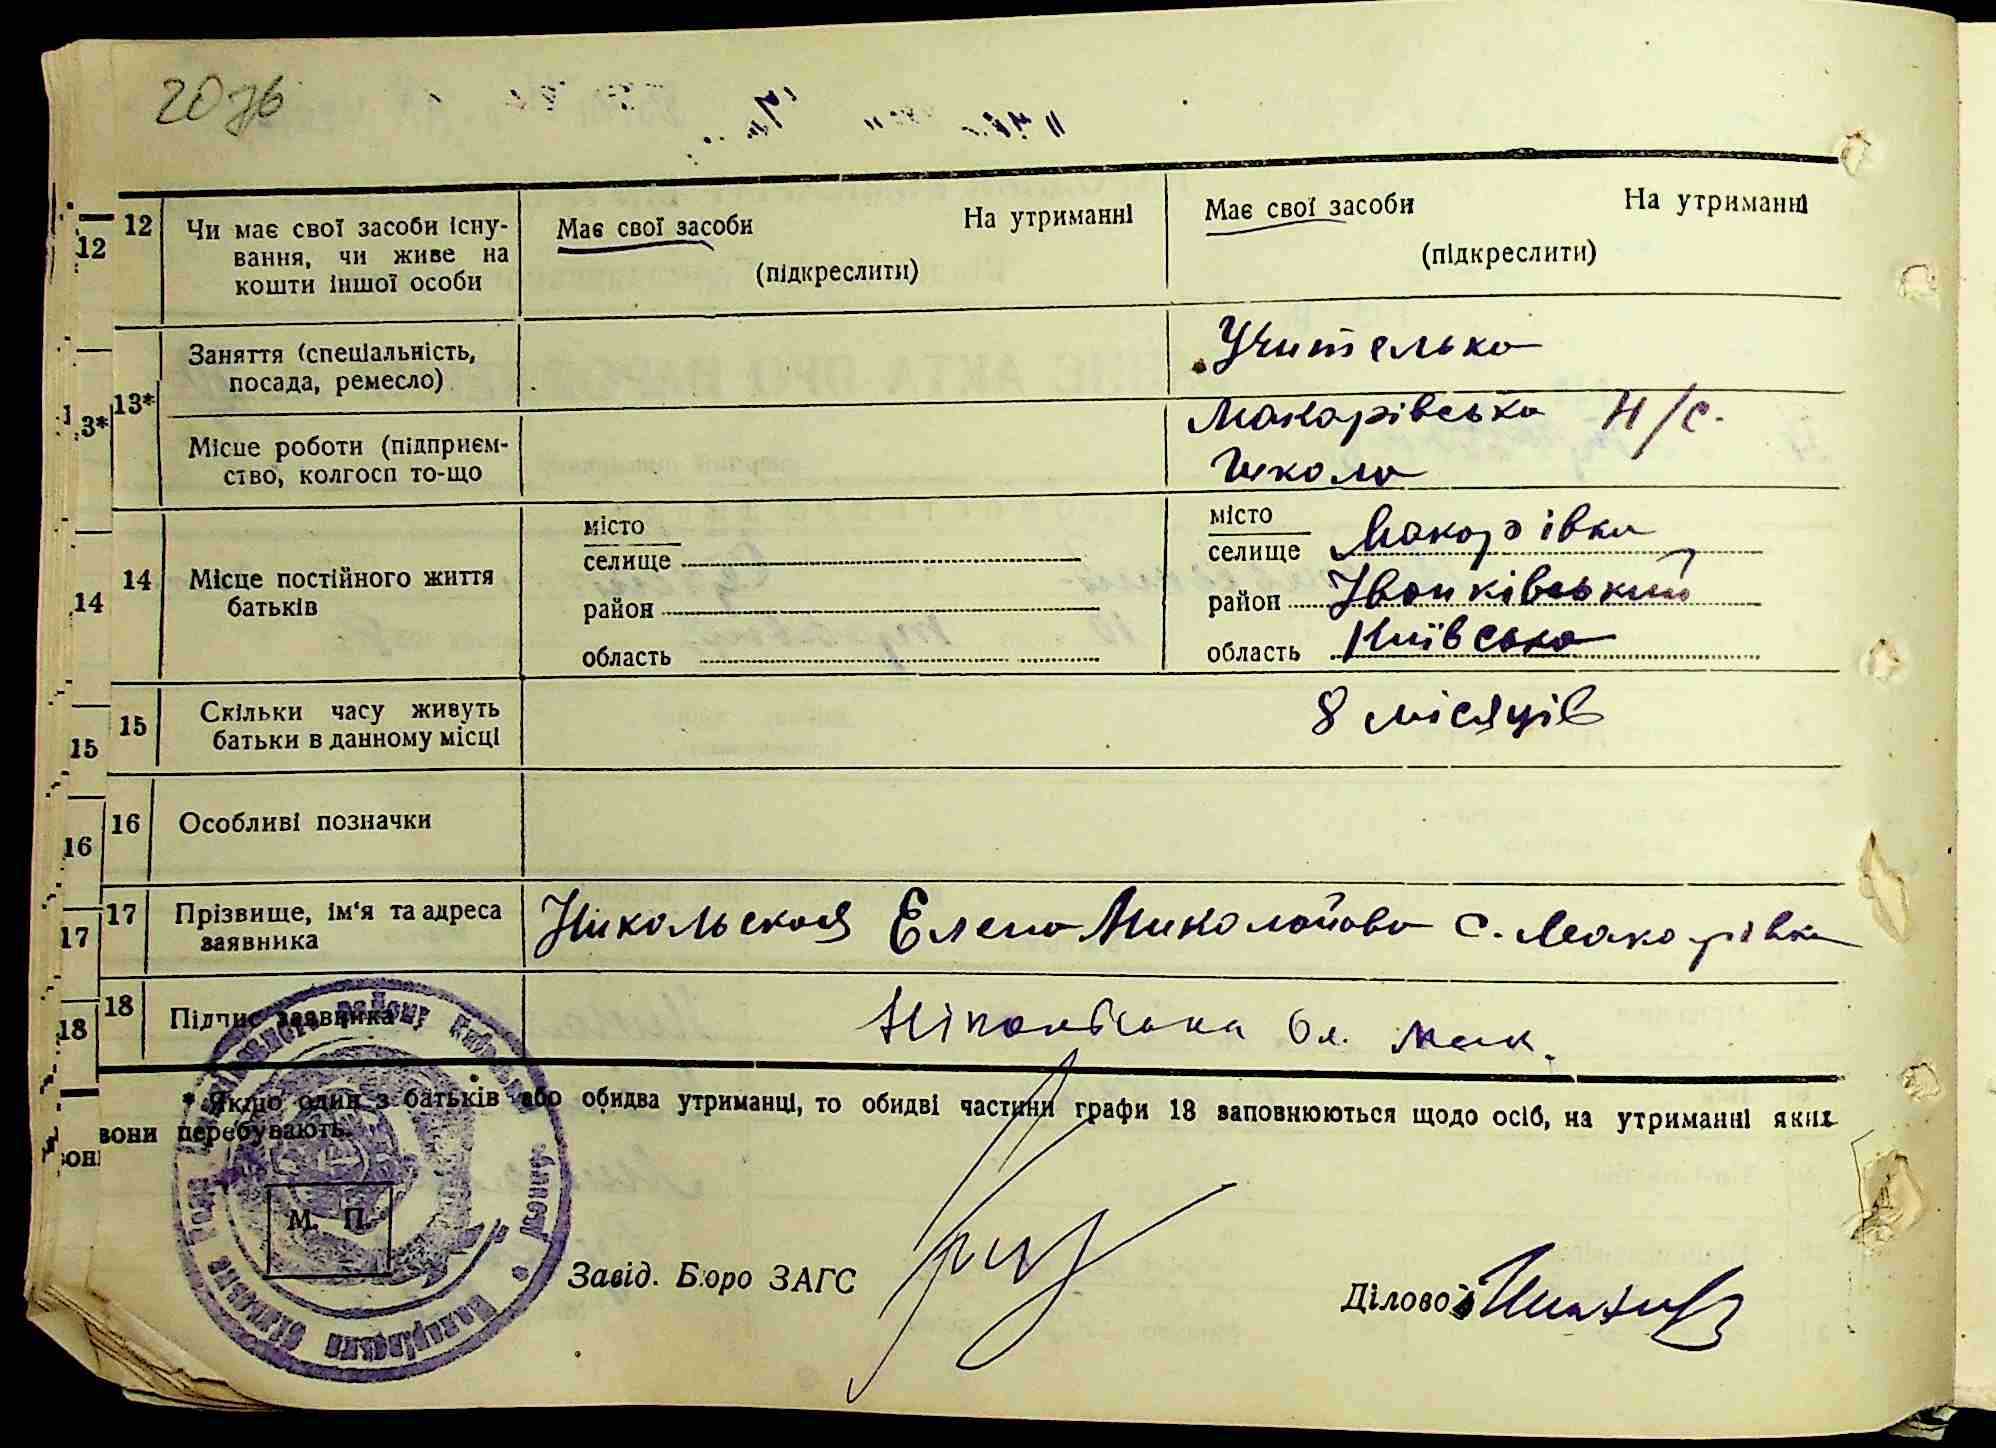 2076
12 Чи має свої засоби існу- Має свої засоби На утриманні Має свої засоби На утриманні
12 вання, чи живе на (підкреслити) (підкреслити)
кошти іншої особи
Заняття (спеціальність, Учителько
посада, ремесло)
13* Макарівська Н/С.
3* Місце роботи (підприєм- школа
ство, колгосп то-що
14 Місце постійного життя місто місто
14 батьків селище селище Макарівка
район район Іванківський
область область Київська
15 Скільки часу живуть 8 місяців
15 батьки в данному місці
16 Особливі позначки
16
17 Прізвище, ім'я та адреса Никольская Елена Миколайовна с. Макарівка
17 заявника
18 Підпис заявника Ніпольська Ол. Мик.
18
* Якщо один з батьків або обидва утриманці, то обидві частини графи 13 заповнюються щодо осіб, на утриманні яких
вони перебувають.
вон
М. П.
Завід. Бюро ЗАГС Діловод